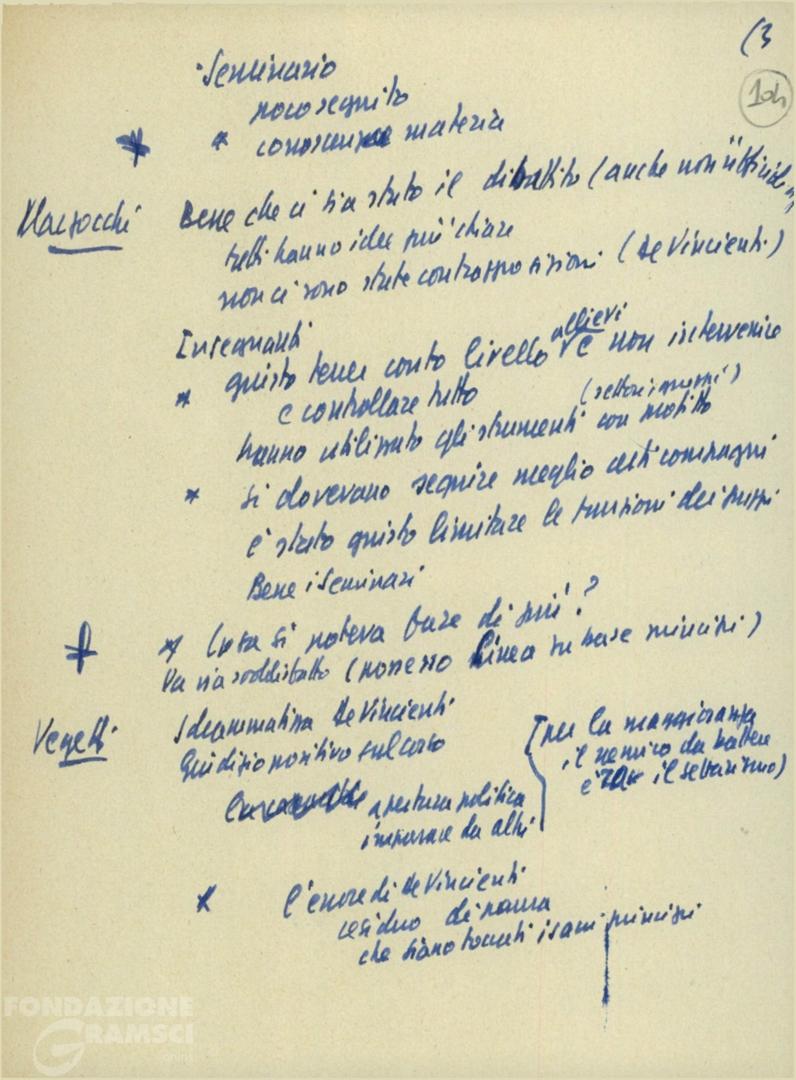 (3
104
Seminario
poco seguito
* conoscenze materia
Macsocchi Bene che ci sia stato il dibattito (anche non
tutti hanno idee più chiare
non ci sono state contrapposizioni (De Vincienti)
Insegnanti
* giusto tener conto livello allievi e non intervenire
e controllare tutto
hanno utilizzato gli strumenti con profitto
* si dovevano seguire meglio certi compagni
è stato giusto limitare le funzioni dei gruppi
Bene i Seminari
* Cosa si poteva fare di più?
Va via soddisfatto (possesso linea su base principi)
Vegetti Sdrammatizza De Vincienti
Giudizio positivo sul corso
apertura politica
imparare da altri
[per la maggioranza
il nemico da battere
è il settarismo)
* l'errore di De Vincienti
residuo di paura
che siano toccati i sani principi
FONDAZIONE
GRAMSCI